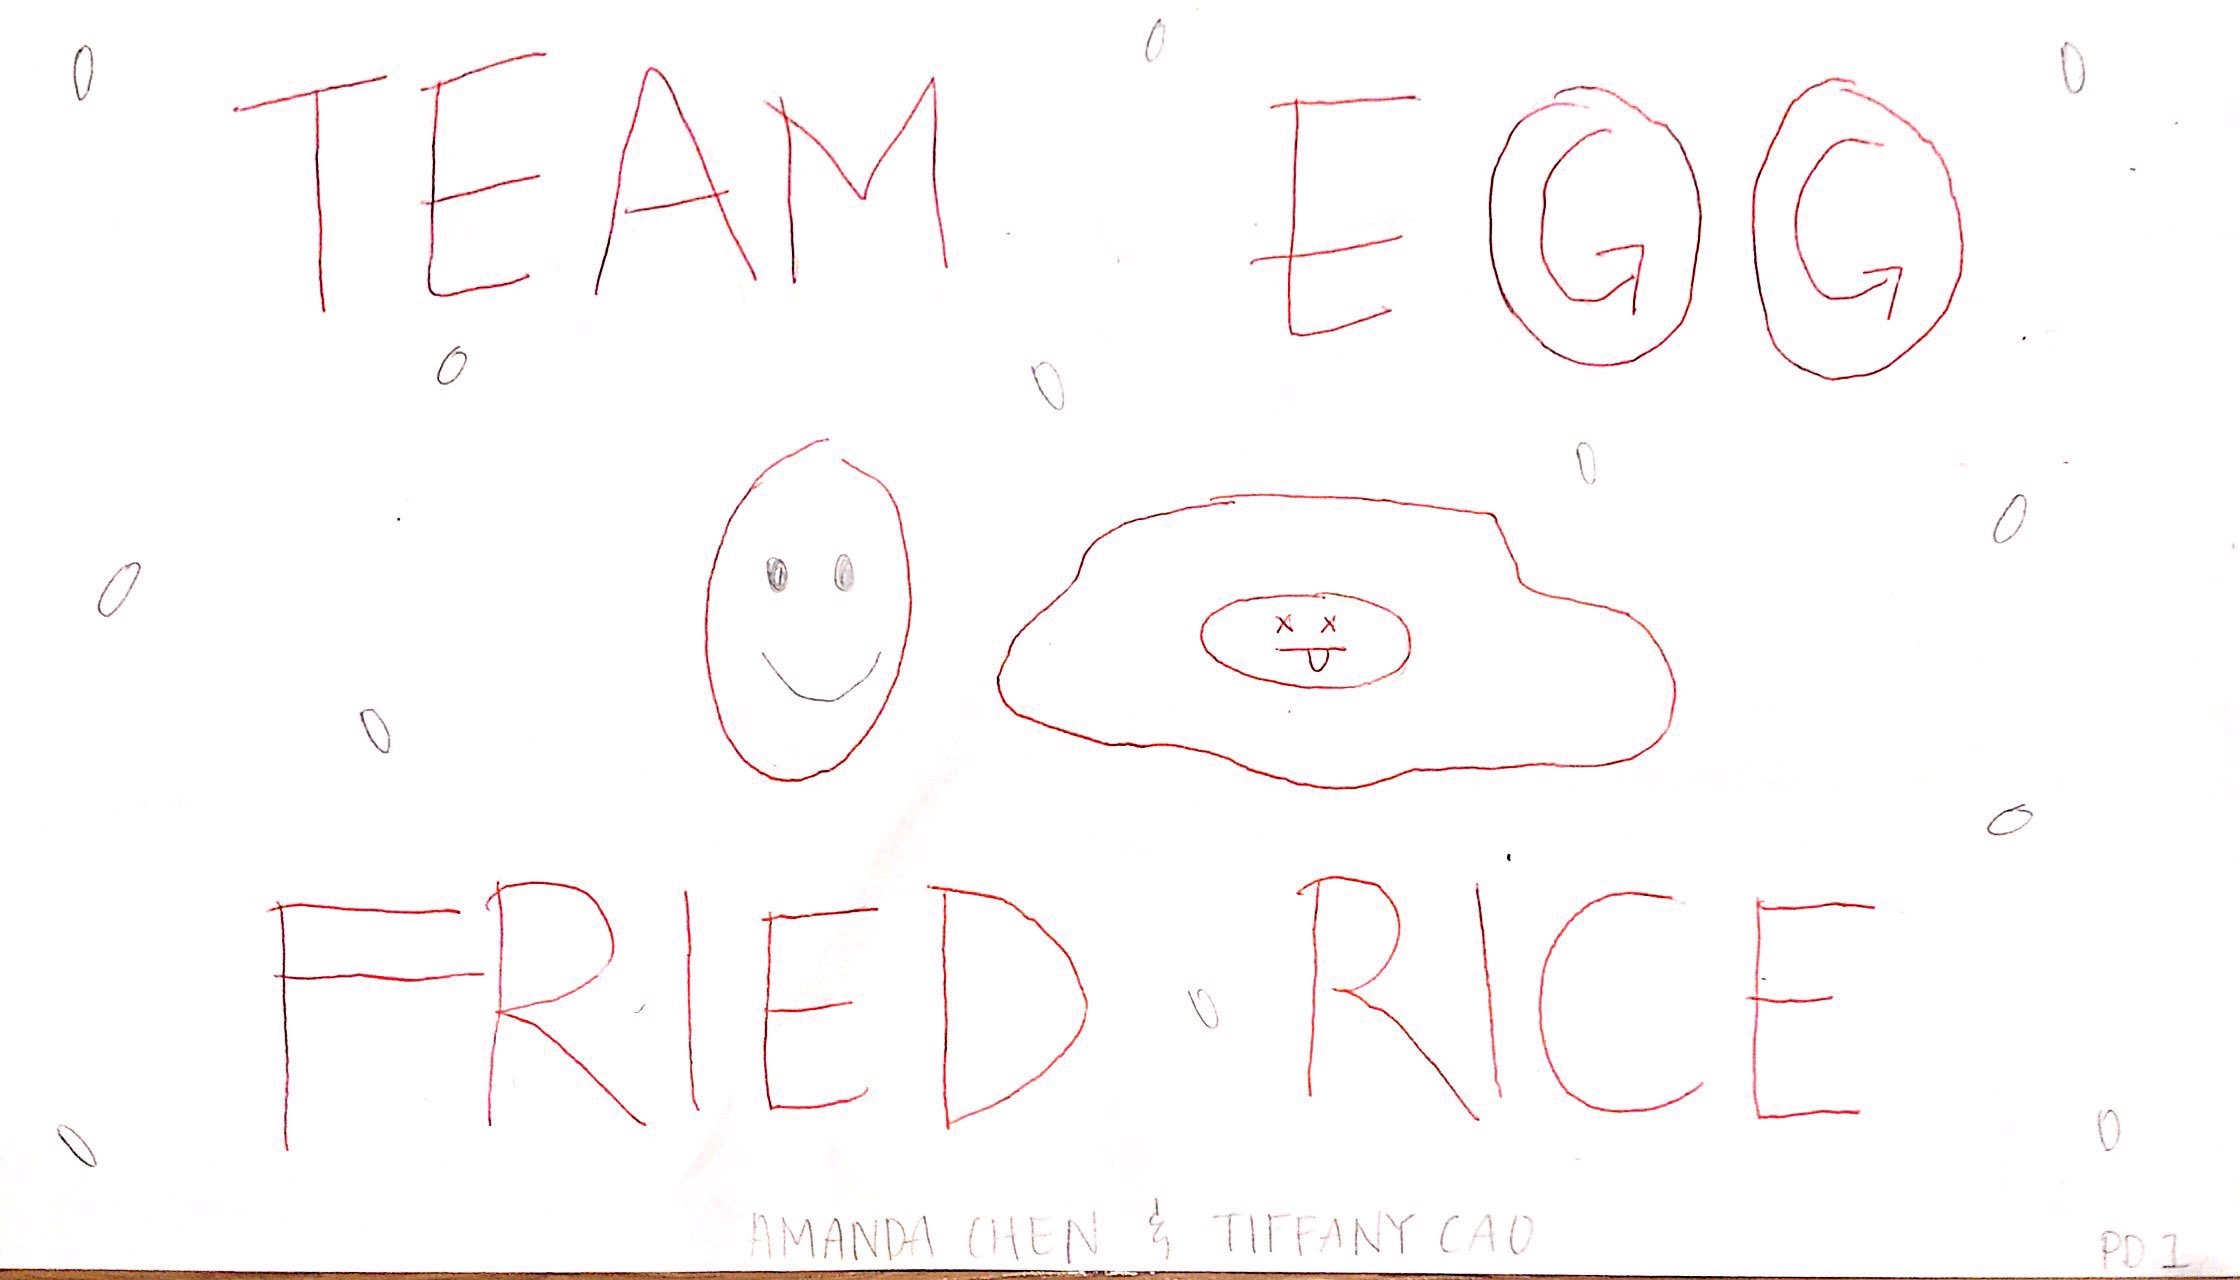 TEAM EGG
FRIED RICE
AMANDA CHEN & TIFFANY CAO
PD 1